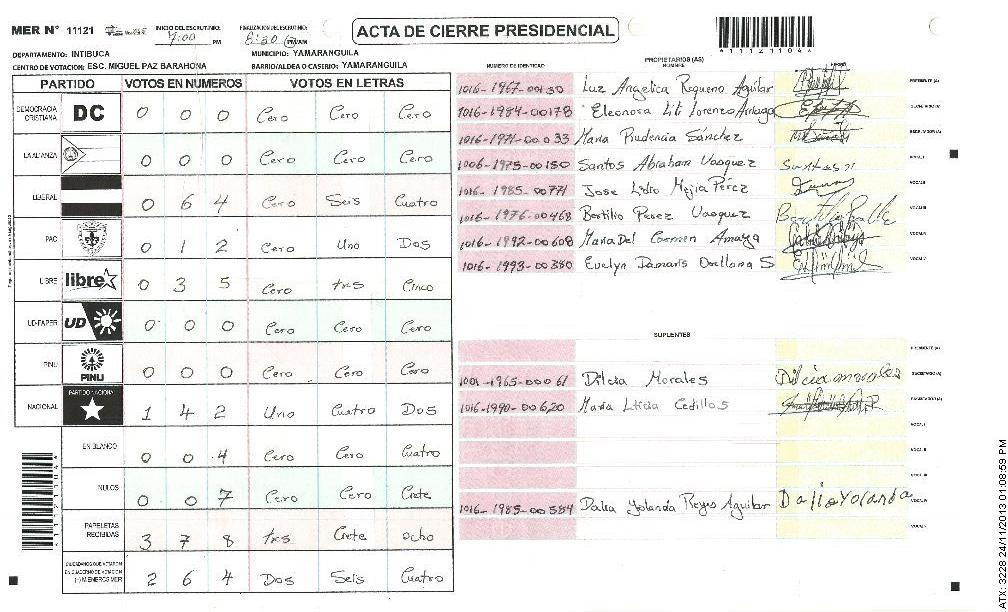 MER Nº 11121 INICIO DEL ESCRUTINIO: 7:00 PM FINALIZACION DEL ESCRUTINIO: 8:30 PM/AM
ACTA DE CIERRE PRESIDENCIAL
1112110 4
DEPARTAMENTO: INTIBUCA MUNICIPIO: YAMARANGUILA
CENTRO DE VOTACION: ESC. MIGUEL PAZ BARAHONA BARRIO/ALDEA O CASERIO: YAMARANGUILA
PARTIDO VOTOS EN NUMEROS VOTOS EN LETRAS
DEMOCRACIA CRISTIANA DC 0 0 0 Cero Cero Cero
LA ALIANZA 0 0 0 Cero Cero Cero
LIBERAL 0 6 4 Cero Seis Cuatro
PAC 0 1 2 Cero Uno Dos
LIBRE libre 0 3 5 Cero tres Cinco
UD-FAPER UD 0 0 0 Cero Cero Cero
PINU PINU 0 0 0 Cero Cero Cero
NACIONAL PARTIDO NACIONAL 1 4 2 Uno Cuatro Dos
EN BLANCO 0 0 4 Cero Cero Cuatro
NULOS 0 0 7 Cero Cero Ciete
PAPELETAS RECIBIDAS 3 7 8 tres Ciete ocho
CIUDADANOS QUE VOTARON EN CUADERNO DE VOTACION (+) MIEMBROS MER 2 6 4 Dos Seis Cuatro
PROPIETARIOS (AS)
NUMERO DE IDENTIDAD NOMBRE FIRMA
1016-1967-00130 Luz Angelica Requeno Aguilar PRESIDENTE (A)
1016-1984-00178 Eleonora Liti Lorenzo Arriaga SECRETARIO (A)
1016-1971-00033 Maria Prudencia Sánchez ESCRUTADOR (A)
1006-1975-00150 Santos Abraham Vasquez VOCAL I
1016-1985-00771 Jose Isidro Mejia Pérez VOCAL II
1016-1976-00468 Bertilio Perez Vasquez VOCAL III
1016-1992-00608 Maria Del Carmen Amaya VOCAL IV
1016-1993-00380 Evelyn Damaris Orellana S VOCAL V
SUPLENTES
PRESIDENTE (A)
1001-1965-00061 Dilcia Morales Dilcia morales SECRETARIO (A)
1016-1990-00620 Maria Liticia Cedillos ESCRUTADOR (A)
VOCAL I
VOCAL II
VOCAL III
1016-1985-00584 Dalia Yolanda Reyes Aguilar Dalia Yolanda VOCAL IV
VOCAL V
ATX: 3228 24/11/2013 01:08:59 PM